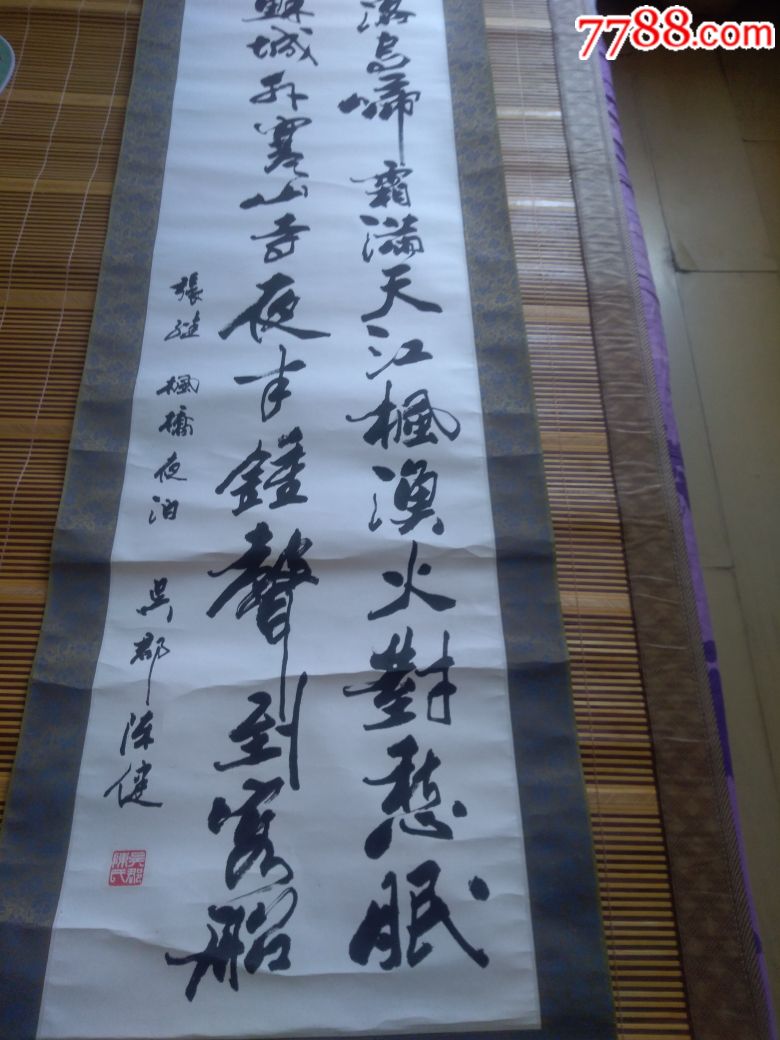 落烏啼霜滿天江楓漁火對愁眠
蘇城外寒山寺夜半鐘聲到客船
張繼 楓橋夜泊 吳郡陳健
吳郡陳氏
7788.com